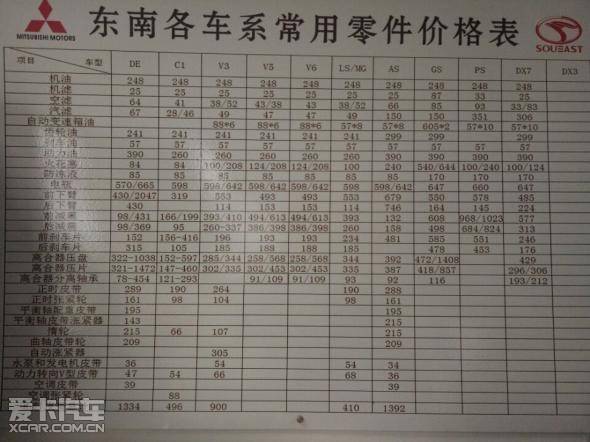 MITSUBISHI MOTORS
东南各车系常用零件价格表
SOUEAST
项目 车型 DE C1 V3 V5 V6 LS/MG AS GS PS DX7 DX3
机油 248 248 248 248 248 248 248 248 248 248
机滤 25 25 25 25 25 25 25 87 33 25
空滤 64 41 38/52 43/38 43 38/52 66 85 93 33/83
汽滤 67 28/46 49 47 47 49 150 150 351 306
自动变速箱油 88*6 88*6 88*6 57*8 57*8 605*2 57*10 57*10
齿轮油 241 241 241 241 241 241 299 299 299
刹车油 57 57 57 57 57 57 57 57 57 57
助力油 390 260 260 260 260 260 390 390 390 390
火花塞 84 84 100/208 124/208 124/208 100 240 540/644 100/240 100/124
防冻液 85 85 85 85 85 85 85 170 170 170
电瓶 570/665 598 598/642 598/642 598/642 598 598/642 647 660 647
前下臂 430/2047 319 553 493 493 553 679 550 578 485
后下臂 430 114 153 153 114 746 164 145 224
前减震 98/431 166/199 393/410 494/613 494/613 393 132 608 968/1023 577
后减震 98/369 95 260-337 386/398 386/398 260 158 498 684/824 313
前刹车片 152 156-416 196 193 193 234 481 585 551 246
后刹车片 315 105 185 188 188 185 478 453 176
离合器压盘 322-1038 152-597 285/344 258/568 258/568 344 392 472/1408 429
离合器压片 321-1472 147-460 302/335 302/453 302/453 335 387 418/857 296/306
离合器分离轴承 78-454 121-293 91/109 91/109 93 92 116 193/212
正时皮带 289 190 264 190 288
正时张紧轮 161 98 104 98 161
平衡轴配重皮带 195 195
平衡轴皮带涨紧器 143 215
惰轮 215 66 107 215
曲轴皮带轮 209 209
自动涨紧器 305
水泵和发电机皮带 36 54 54 34
动力转向V型皮带 47 54 66 68 36
空调皮带 39 39
空调张紧轮 88
1334 496 900 410 1392
爱卡汽车
XCAR.COM.CN